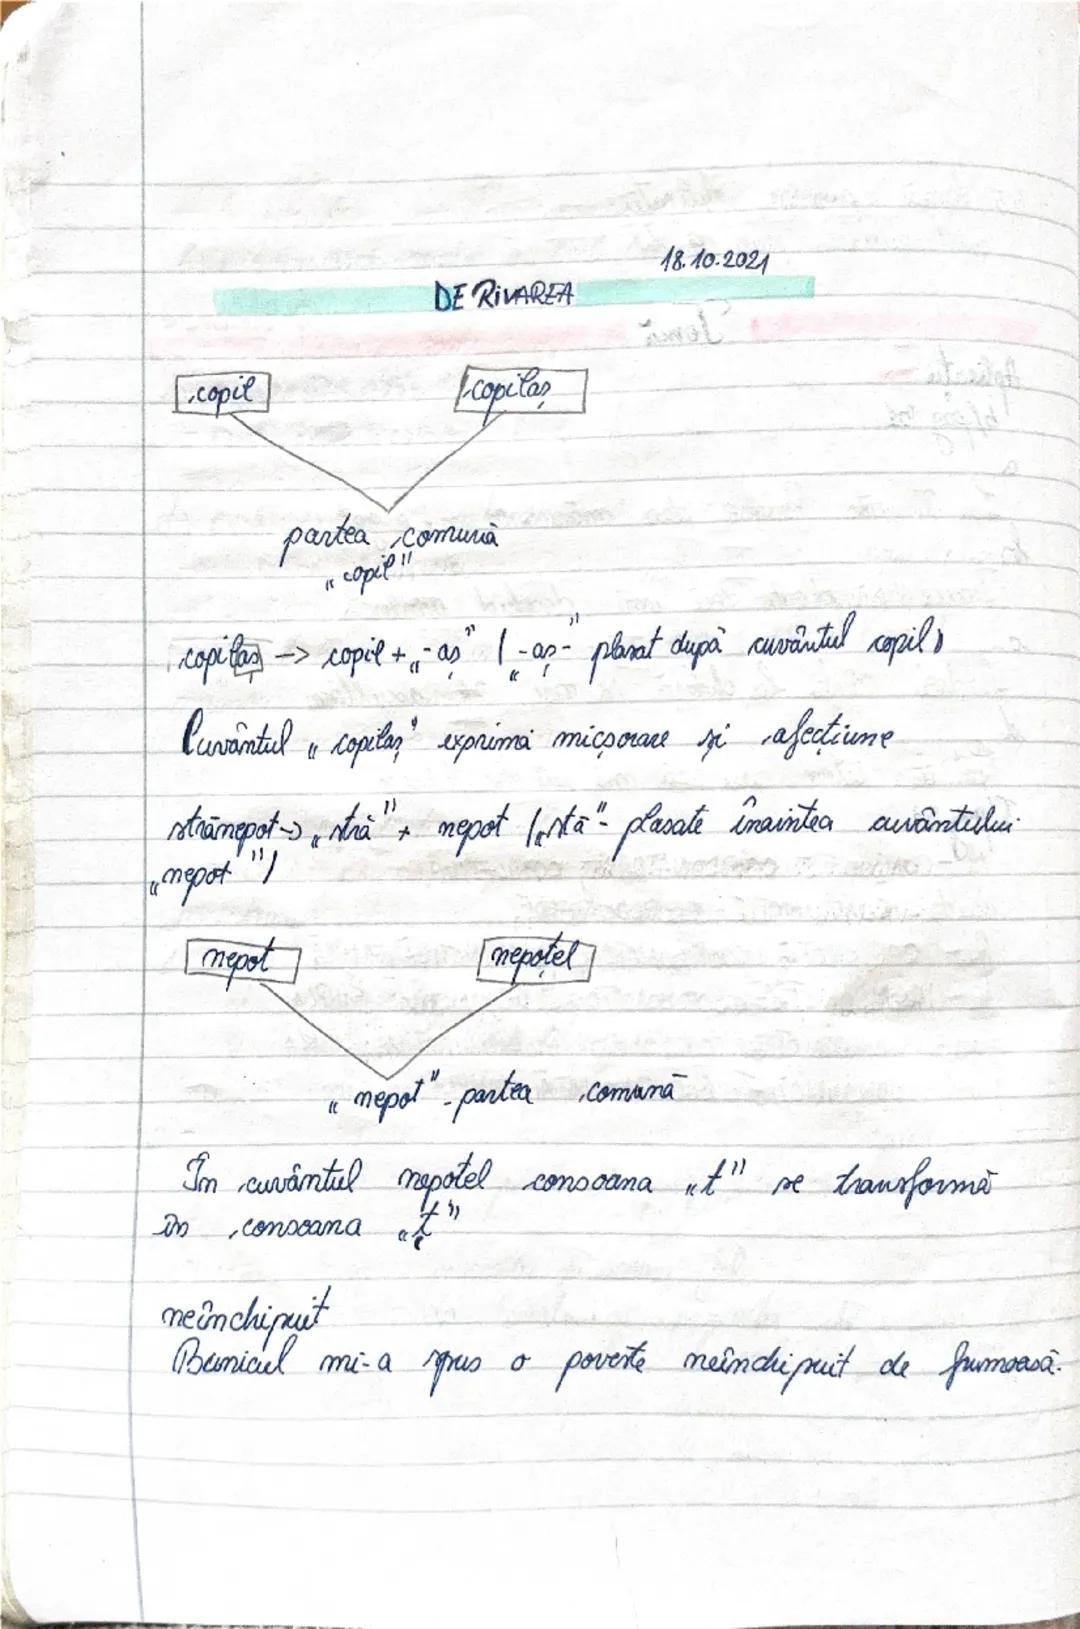 18.10.2021
DERIVAREA
copil copilaș
partea comună
„copil"
copilaș -> copil + „-aș" (-„aș"- plasat după cuvântul copil)
Cuvântul „copilaș" exprimă micșorare și afecțiune
strănepot -> „stră" + nepot („stă"- plasate înaintea cuvântului
„nepot")
nepot nepoțel
„nepot" - partea comună
În cuvântul nepoțel consoana „t" se transformă
în consoana „ț"
neînchipuit
Bunicul mi-a spus o poveste neînchipuit de frumoasă.